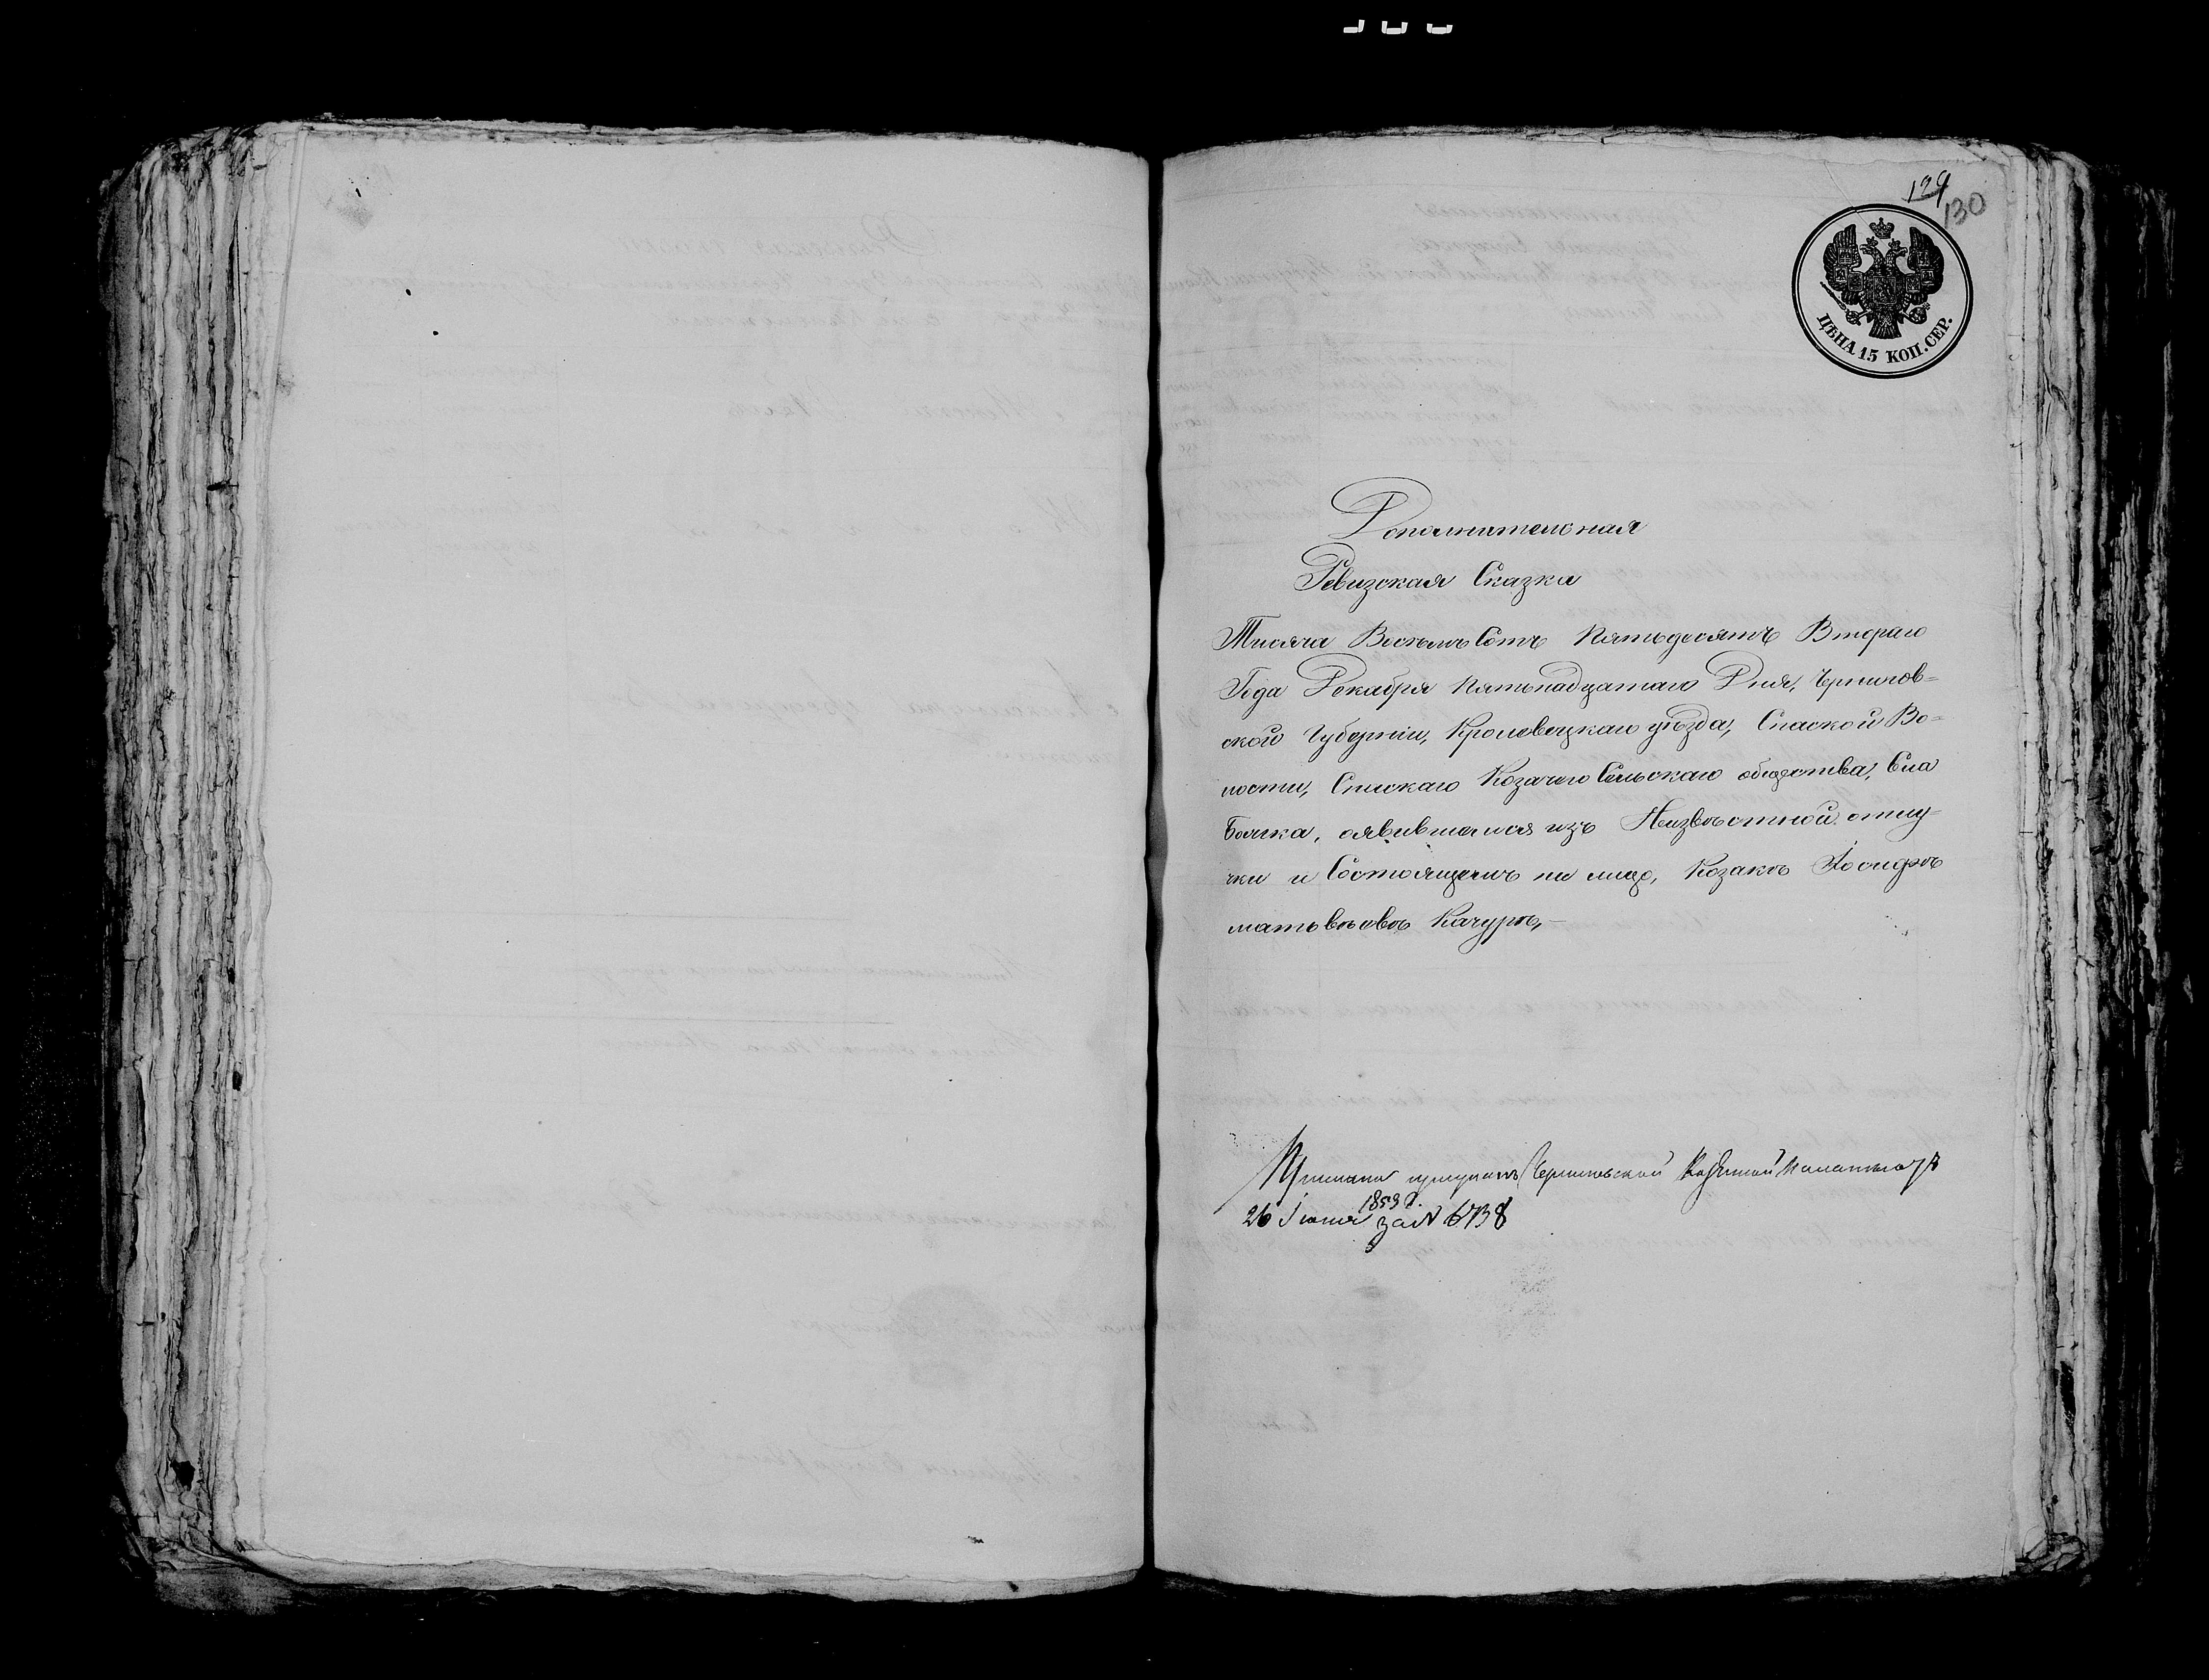 129
130
ЦѢНА 15 КОП. СЕР.
Дополнительная
Ревизская Сказка
Тисяча Восемъ Сотъ Пятьдесятъ Втораго
Года Декабря Пятьнадцатаго Дня, Чернигов=
ской Губернии, Кролевецкаго уѣзда, Спаской Во=
лости, Спаскаго Козачего Сельскаго общества, Села
оявившемся изъ Неизвѣстной отлу=
чки и Состоящемъ на лице, Козакѣ Иосифѣ
матьвѣевѣ Качурѣ,—
Черниговской Казенной Палаты отъ
26 Іюня 1853 г. за N 6738